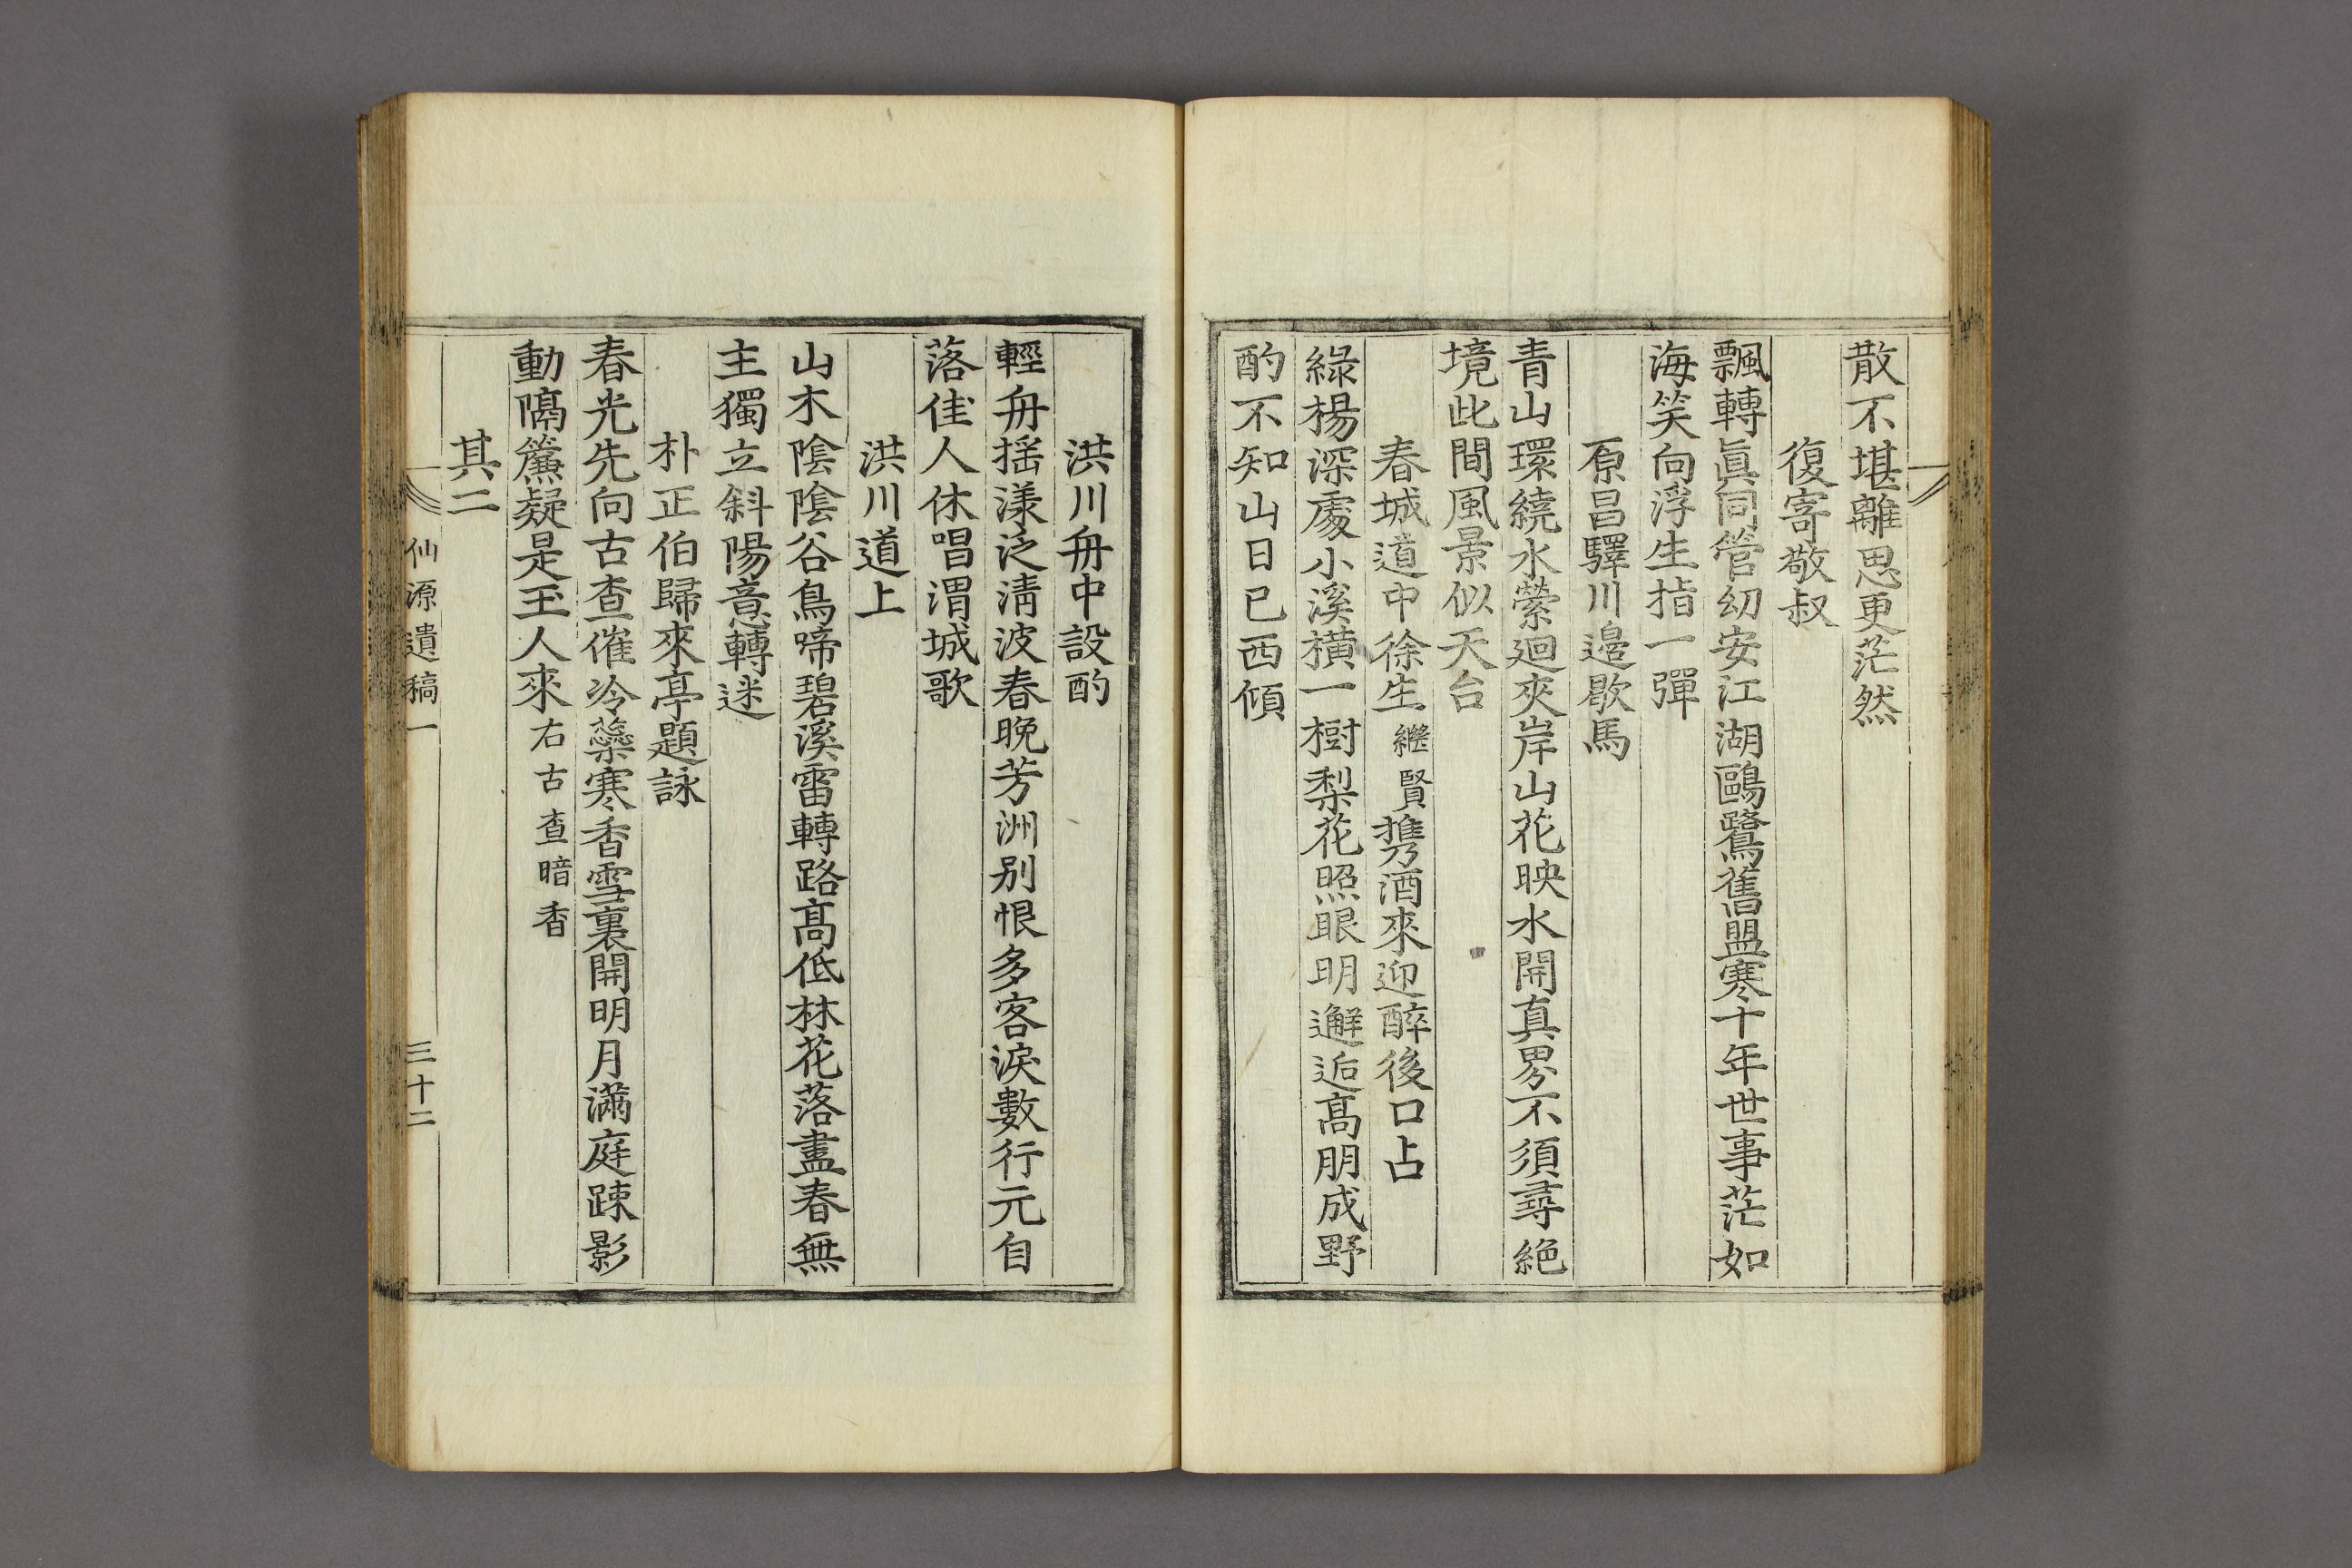 散不堪離思更茫然
復寄敬叔
飄轉眞同管幼安江湖鷗鷺舊盟寒十年世事茫如
海笑向浮生指一彈
原昌驛川邊歇馬
青山環繞水縈迴夾岸山花映水開真界不須尋絶
境此間風景似天台
春城道中徐生繼賢携酒來迎醉後口占
綠楊深處小溪橫一樹梨花照眼明邂逅高朋成野
酌不知山日已西傾
洪川舟中設酌
輕舟揺漾泛淸波春晚芳洲别恨多客淚數行元自
落佳人休唱渭城歌
洪川道上
山木陰陰谷鳥啼碧溪雷轉路高低林花落盡春無
主獨立斜陽意轉迷
朴正伯歸來亭題詠
春光先向古査催冷蘂寒香雪裏開明月滿庭踈影
動隔簾疑是玉人來右古査暗香
其二
仙源遺稿一
三十二